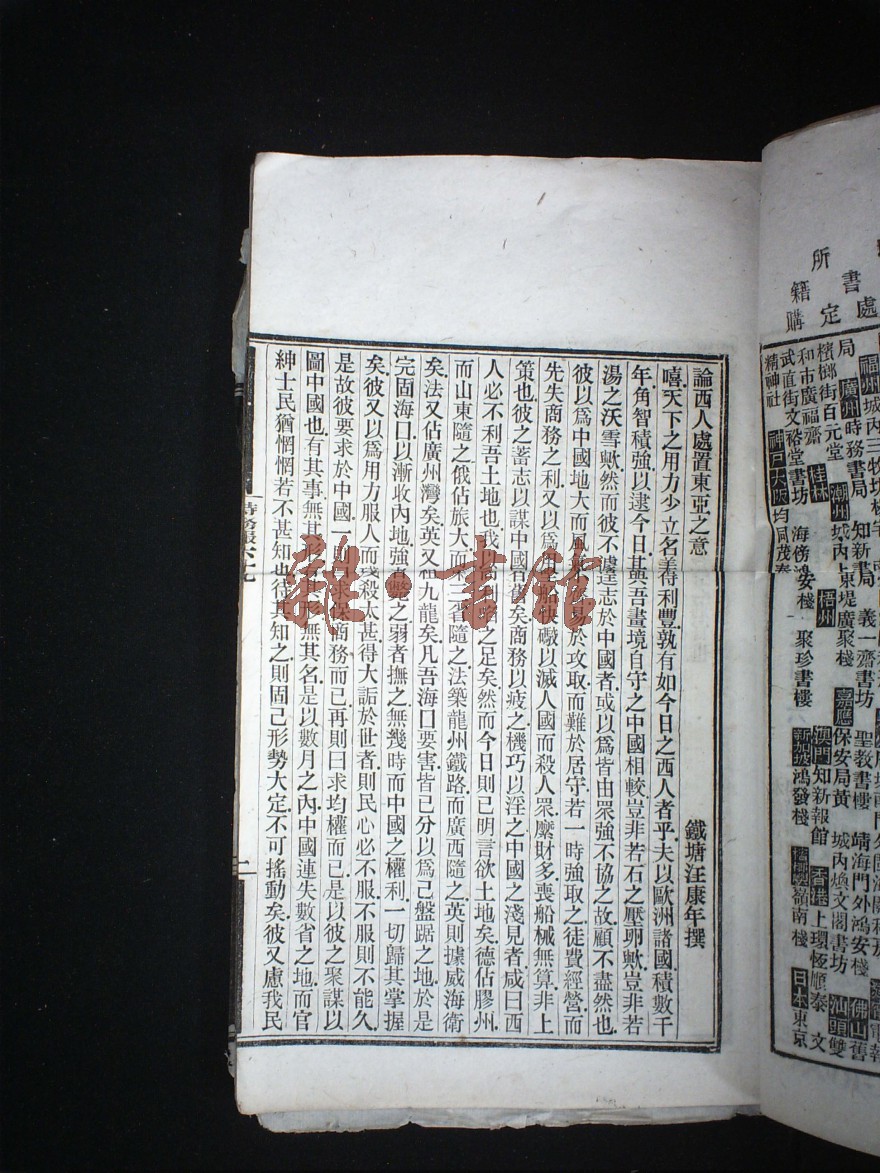 所書處
籍定
購
福州城内三牧坊
局廣州時務書局知新書局義一齋書坊聖教書樓靖海門外鴻安棧佛山舊
檳榔街百元堂潮州城内上東堤廣聚棧嘉應保安局黃城内煥文閣書坊汕頭雙
和市廣福齋桂林梧州澳門知新報館香港上環恆順泰文
武直街文裕堂書坊海傍鴻安棧聚珍書樓新加坡鴻發棧檀香山嶺南棧日本東京
精神社神戶大阪均同茂泰
論西人處置東亞之意
鐵塘汪康年撰
嘻天下之用力少立名美得利豐孰有如今日之西人者乎夫以歐洲諸國積數千
年角智積強以逮今日甚與吾畫境自守之中國相較豈非若石之壓卵歟豈非若
湯之沃雪歟然而彼不遽志於中國者或以爲皆由衆強不協之故顧不盡然也
彼以爲中國地大而風氣不易於攻取而難於居守若一時強取之徒費經營而
先失商務之利又以爲用兵船快礮以滅人國而殺人眾糜財多喪船械無算非上
策也彼之蓄志以謀中國者舊矣商務以疲之機巧以淫之中國之淺見者咸曰西
人必不利吾土地也我商利與之足矣然而今日則已明言欲土地矣德佔膠州
而山東隨之俄佔旅大而東三省隨之法築龍州鐵路而廣西隨之英則據威海衛
矣法又佔廣州灣矣英又租九龍矣凡吾海口要害皆已分以爲己盤踞之地於是
完固海口以漸收内地強者斃之弱者撫之無幾時而中國之權利一切歸其掌握
矣彼又以爲用力服人而殘殺太甚得大詬於世者則民心必不服不服則不能久
是故彼要求於中國一則曰求保商務而已再則曰求均權而已是以彼之聚謀以
圖中國也有其事無其形有其形無其名是以數月之内中國連失數省之地而官
紳士民猶惘惘若不甚知也待其知之則固己形勢大定不可搖動矣彼又慮我民
時務報六七
二
雜·書館